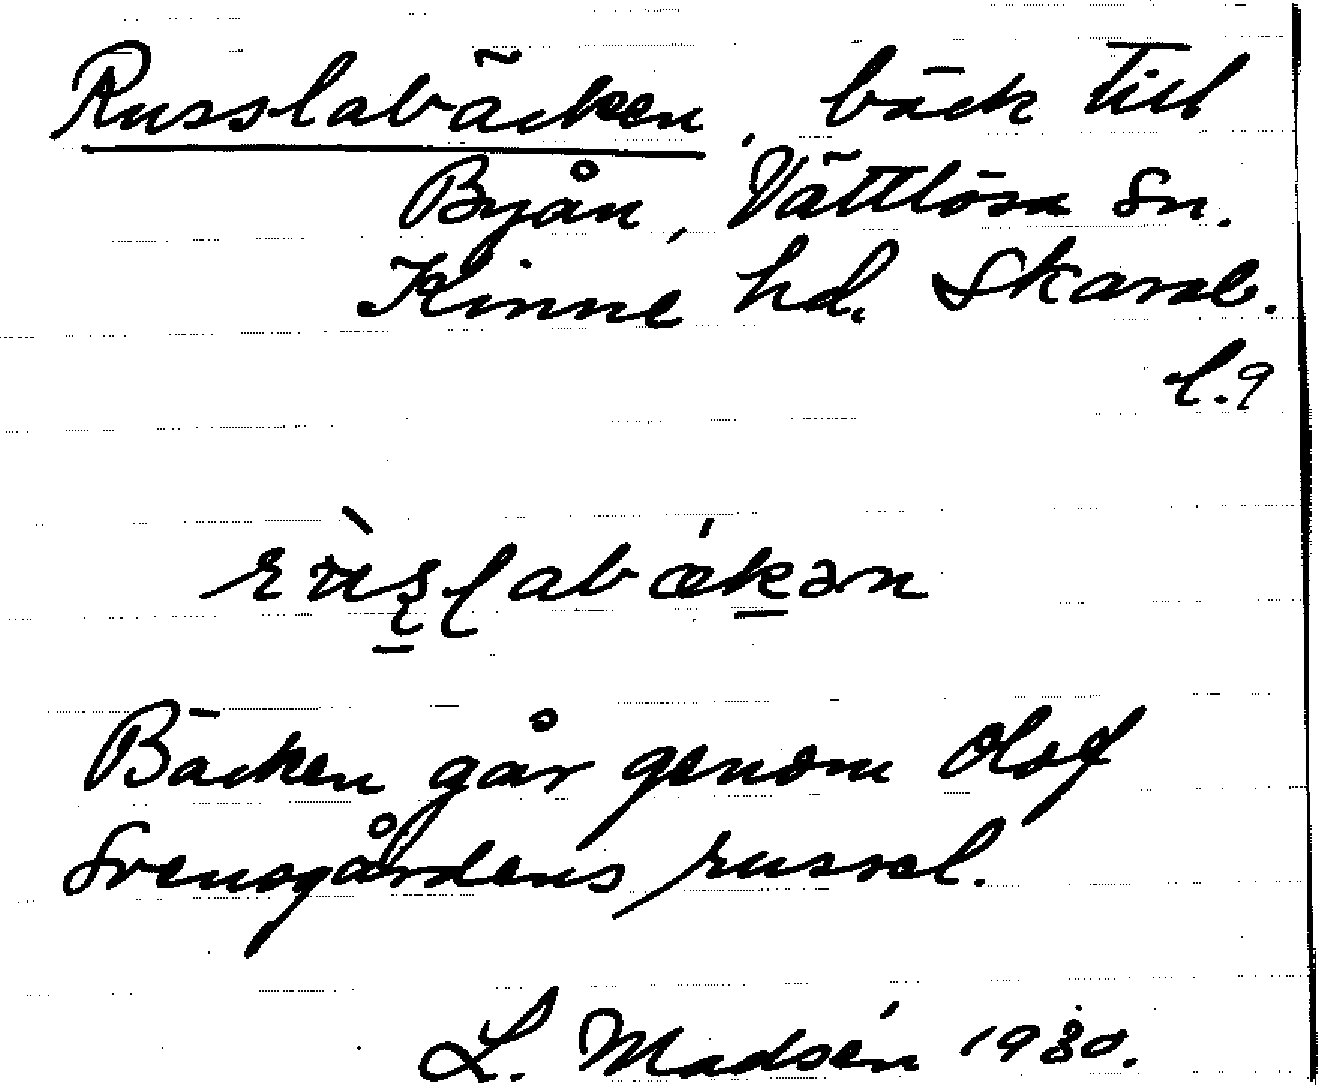 Russlabäcken, bäck till
Byån, Vättlösa Sn.
Kinne hd. Skarab.
l.9
rùs̱labǽḵən
Bäcken går genom Olof
Svensgårdens russel.
L. Madsén 1930.